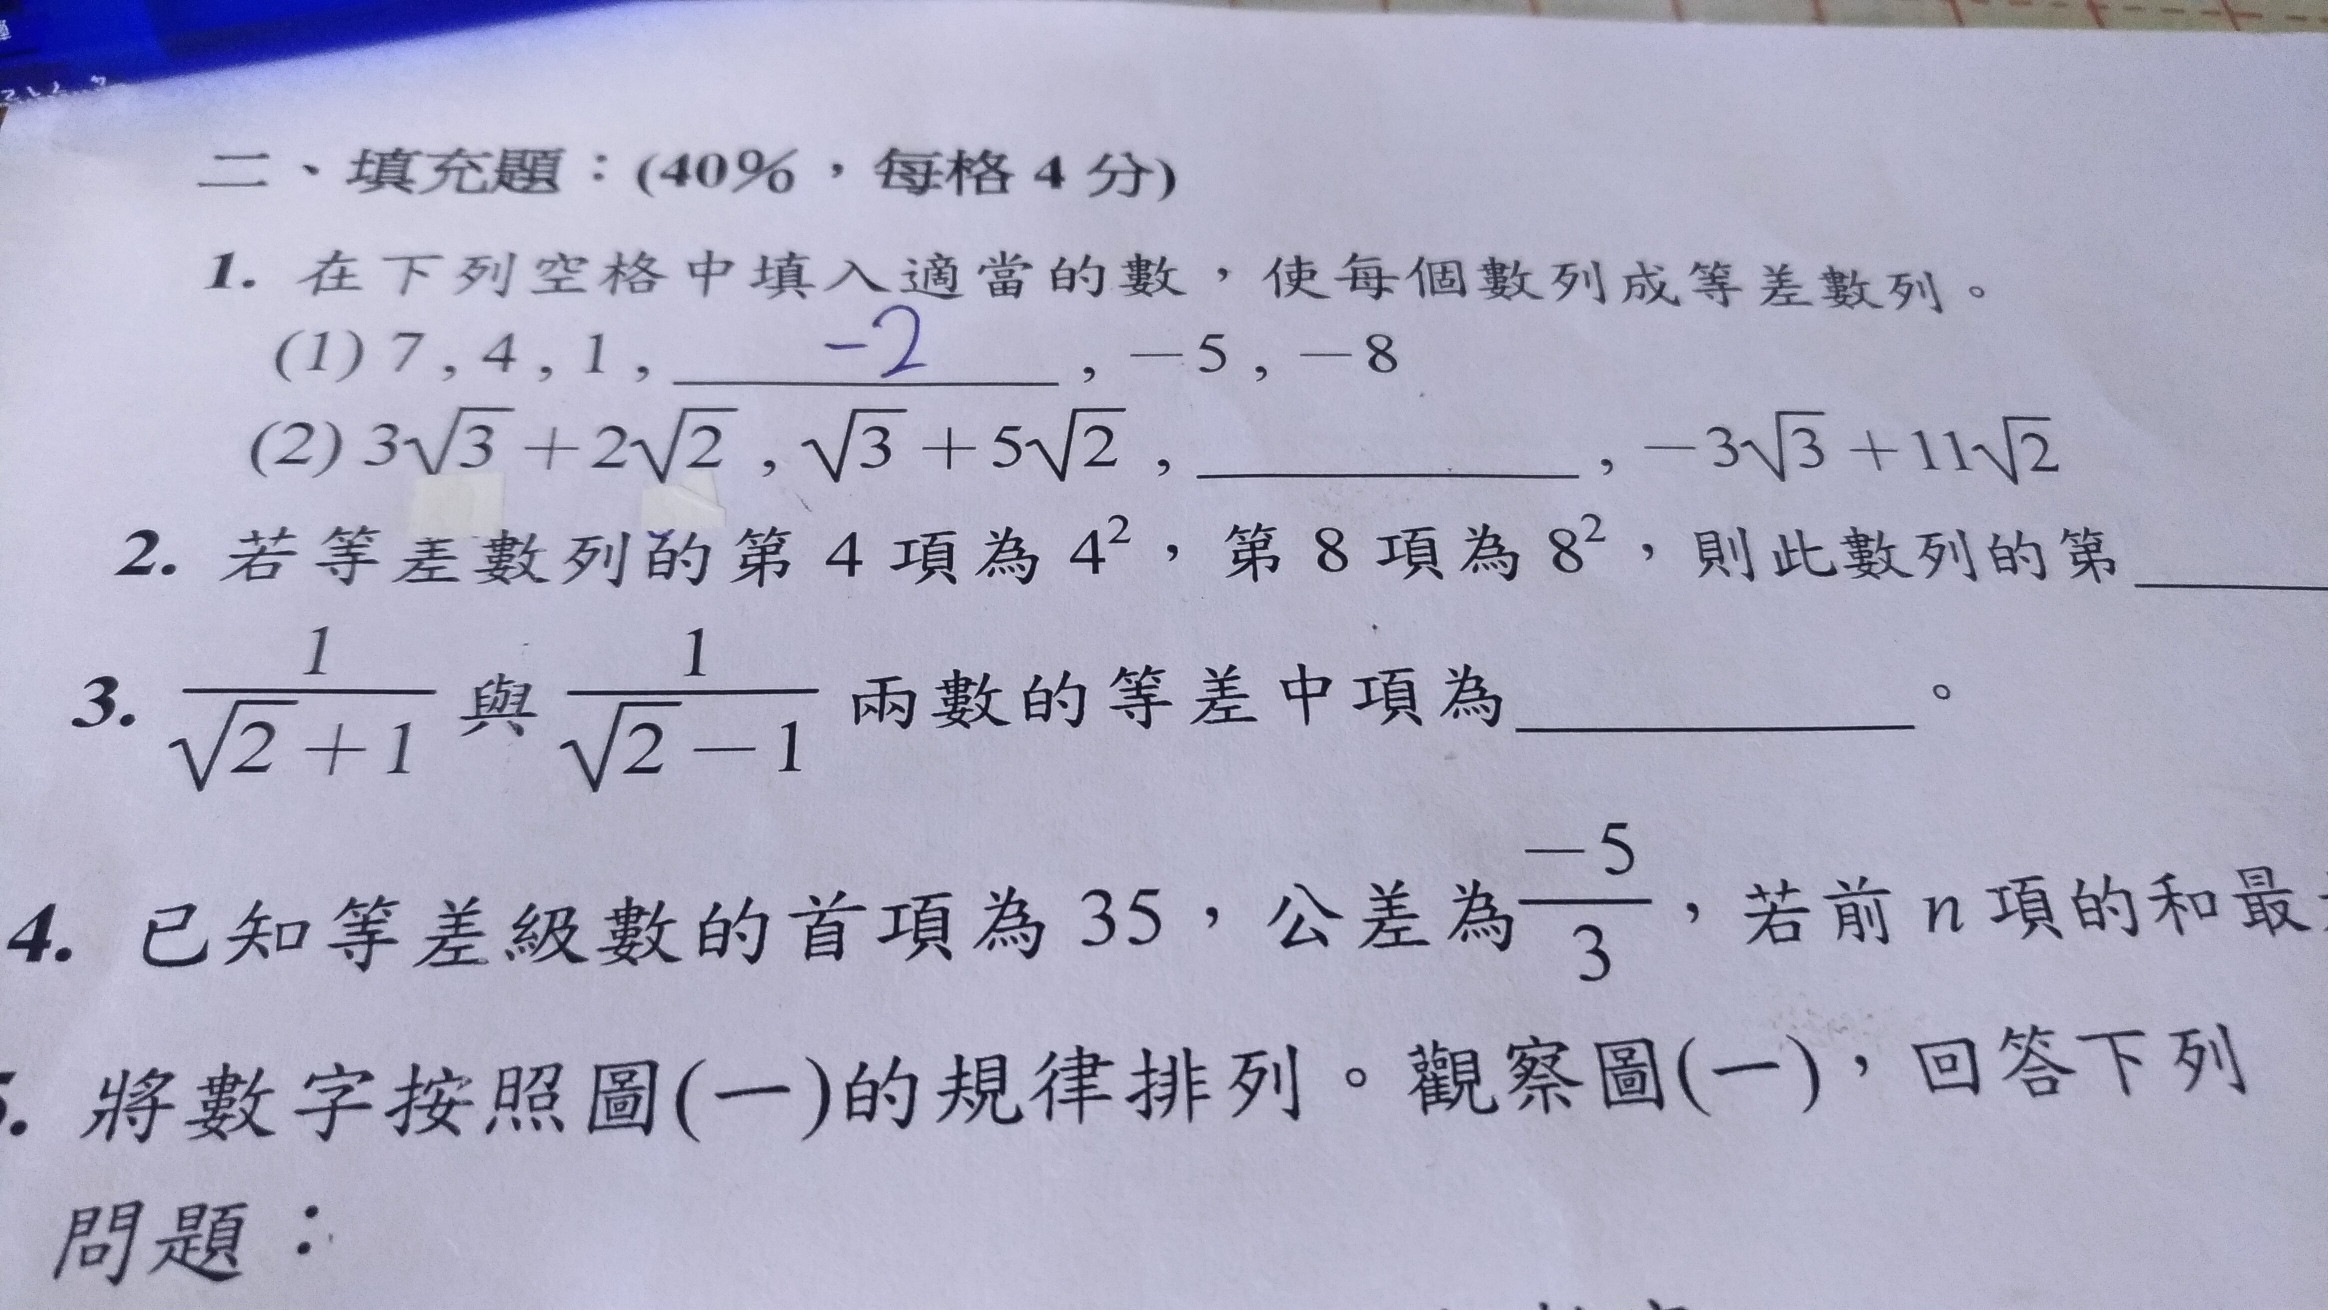 二、填充題：(40%，每格 4 分)
1. 在下列空格中填入適當的數，使每個數列成等差數列。
(1) 7 , 4 , 1 , -2 , －5 , －8
(2) 3√3＋2√2 , √3＋5√2 , ________ , －3√3＋11√2
2. 若等差數列的第 4 項為 4²，第 8 項為 8²，則此數列的第________
3. 1/(√2＋1) 與 1/(√2－1) 兩數的等差中項為________。
4. 已知等差級數的首項為 35，公差為 －5/3，若前 n 項的和最
. 將數字按照圖(一)的規律排列。觀察圖(一)，回答下列
問題：